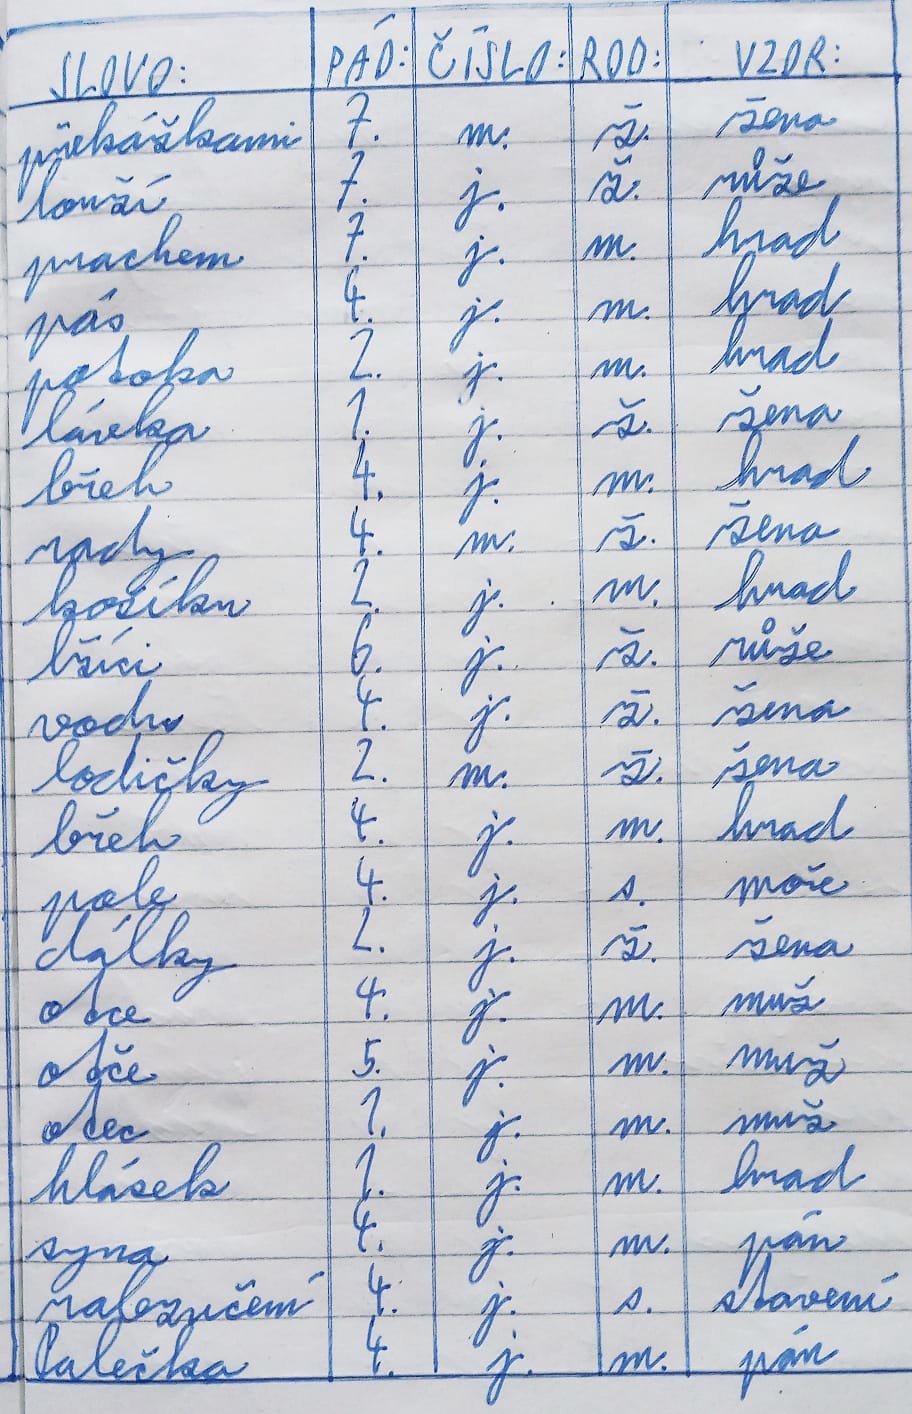 SLOVO: PÁD: ČÍSLO: ROD: VZOR:
překážkami 7. m. ž. žena
louží 7. j. ž. růže
prachem 7. j. m. hrad
pás 4. j. m. hrad
potoka 2. j. m. hrad
lávka 1. j. ž. žena
břeh 4. j. m. hrad
rady 4. m. ž. žena
košíku 2. j. m. hrad
lžíci 6. j. ž. růže
vodu 4. j. ž. žena
lodičky 2. m. ž. žena
břeh 4. j. m. hrad
pole 4. j. s. moře
dálky 2. j. ž. žena
otce 4. j. m. muž
otče 5. j. m. muž
otec 1. j. m. muž
hlásek 1. j. m. hrad
syna 4. j. m. pán
4. j. s. stavení
Palečka 4. j. m. pán